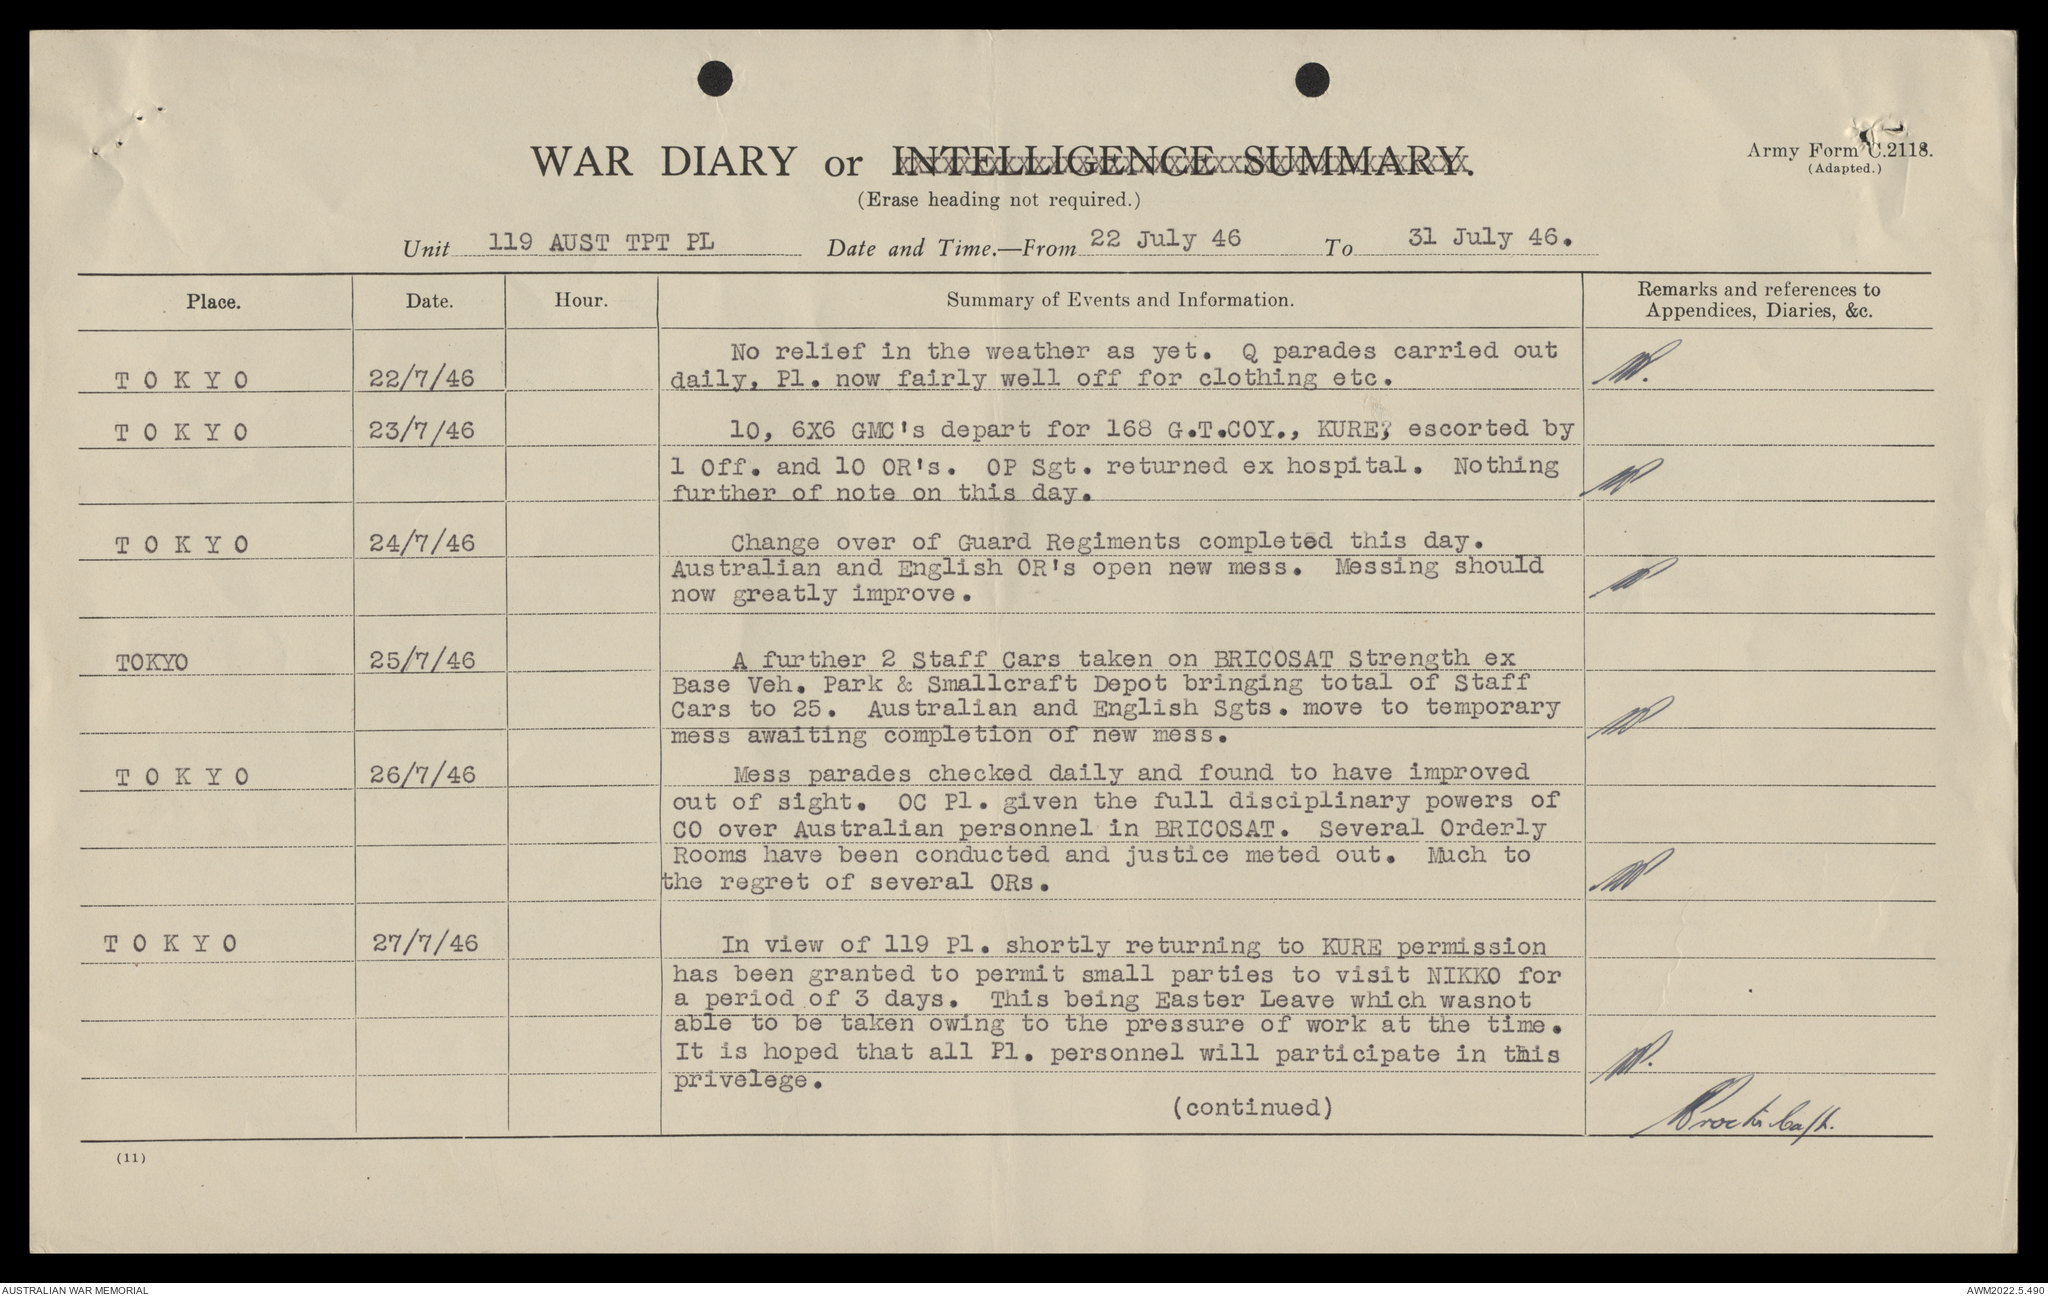 WAR DIARY or INTELLIGENCE SUMMARY.
(Erase heading not required.)
Army Form C.2118.
(Adapted.)
Unit 119 AUST TPT PL Date and Time.—From 22 July 46 To 31 July 46.
Place. Date. Hour. Summary of Events and Information. Remarks and references to
Appendices, Diaries, &c.
No relief in the weather as yet. Q parades carried out
T O K Y O 22/7/46 daily, Pl. now fairly well off for clothing etc.
T O K Y O 23/7/46 10, 6X6 GMC's depart for 168 G.T.COY., KURE, escorted by
1 Off. and 10 OR's. OP Sgt. returned ex hospital. Nothing
further of note on this day.
T O K Y O 24/7/46 Change over of Guard Regiments completed this day.
Australian and English OR's open new mess. Messing should
now greatly improve.
TOKYO 25/7/46 A further 2 Staff Cars taken on BRICOSAT Strength ex
Base Veh. Park & Smallcraft Depot bringing total of Staff
Cars to 25. Australian and English Sgts. move to temporary
mess awaiting completion of new mess.
T O K Y O 26/7/46 Mess parades checked daily and found to have improved
out of sight. OC Pl. given the full disciplinary powers of
CO over Australian personnel in BRICOSAT. Several Orderly
Rooms have been conducted and justice meted out. Much to
the regret of several ORs.
T O K Y O 27/7/46 In view of 119 Pl. shortly returning to KURE permission
has been granted to permit small parties to visit NIKKO for
a period of 3 days. This being Easter Leave which wasnot
able to be taken owing to the pressure of work at the time.
It is hoped that all Pl. personnel will participate in this
privelege.
(continued)
(11)
AUSTRALIAN WAR MEMORIAL
AWM2022.5.490